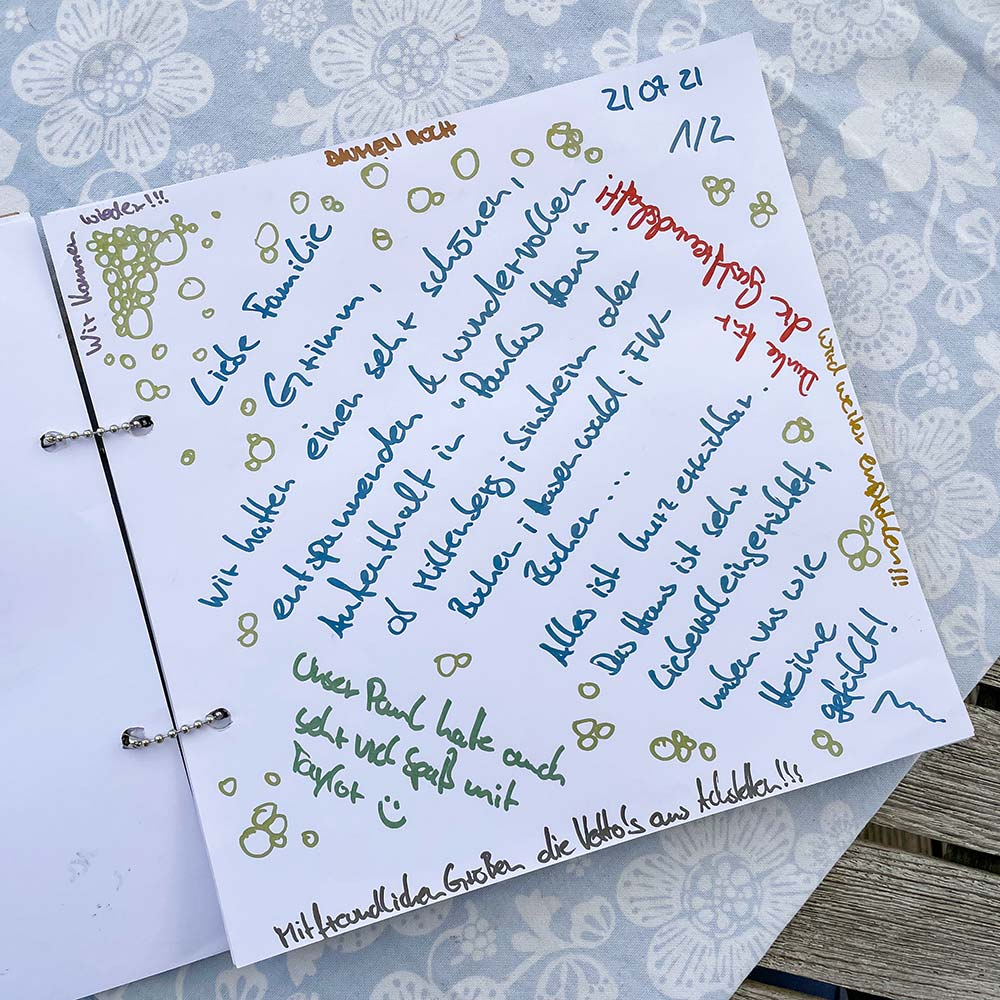 21 07 21
1/2
DAUMEN HOCH
Wir kommen wieder!!!
Liebe Familie
Grimm,
wir hatten einen sehr schönen,
entspannenden & wundervollen
Aufenthalt in "Paulas Haus".
ob Miltenberg, Sinsheim oder
Buchen i Odenwald, FW-
Buchen...
Alles ist kurz erreichbar.
Das Haus ist sehr
liebevoll eingerichtet,
haben uns wie
Heime
gefühlt!
Danke für
die Gastfreundschaft!
weiter empfohlen!!!
Unser Paul hate auch
sehr viel Spaß mit
Taylor
Mit freundlichen Grüßen die Vetto's aus Achstetten!!!